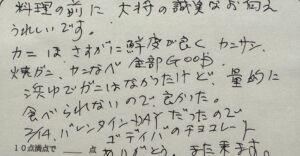 料理の前に 大将の誠実なお伺え
うれしいです。
カニはさすがに鮮度が良く カニサシ、
焼ガニ、カニなべ 全部GOOD
浜ゆでガニはなかったけど、量的に
食べられないので良かった。
2/14. バレンタインDAYだったので
ゴディバのチョコレート
ありがとう また来ます。
10点満点で 点